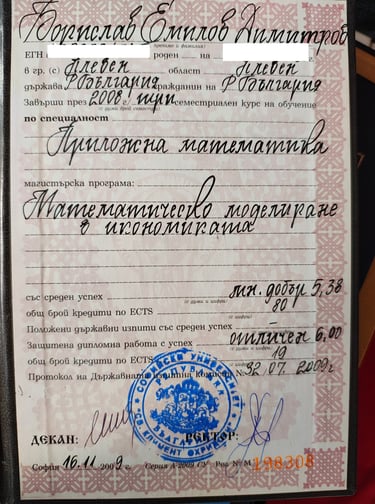 Борислав Емилов Димитров
(собствено, презиме и фамилия)
ЕГН роден на
в гр. (с) Плевен област Плевен
държава Р България гражданин на Р България
Завърши през 2008г. три семестриален курс на обучение
по специалност
Приложна математика
магистърска програма:
Математическо моделиране
в икономиката
със среден успех мн. добър 5,38
(с думи и цифри)
общ брой кредити по ECTS 80
Положени държавни изпити със среден успех
(с думи и цифри)
Защитена дипломна работа с успех отличен 6,00
(с думи и цифри)
общ брой кредити по ECTS 19
Протокол на Държавната изпитна комисия № 32 07. 2009г
СОФИЙСКИ УНИВЕРСИТЕТ
"СВ. КЛИМЕНТ ОХРИДСКИ"
РЕПУБЛИКА
БЪЛГАРИЯ
ДЕКАН: РЕКТОР:
София 16.11 2009 г. Серия А-2009 СУ Рег № М 198308